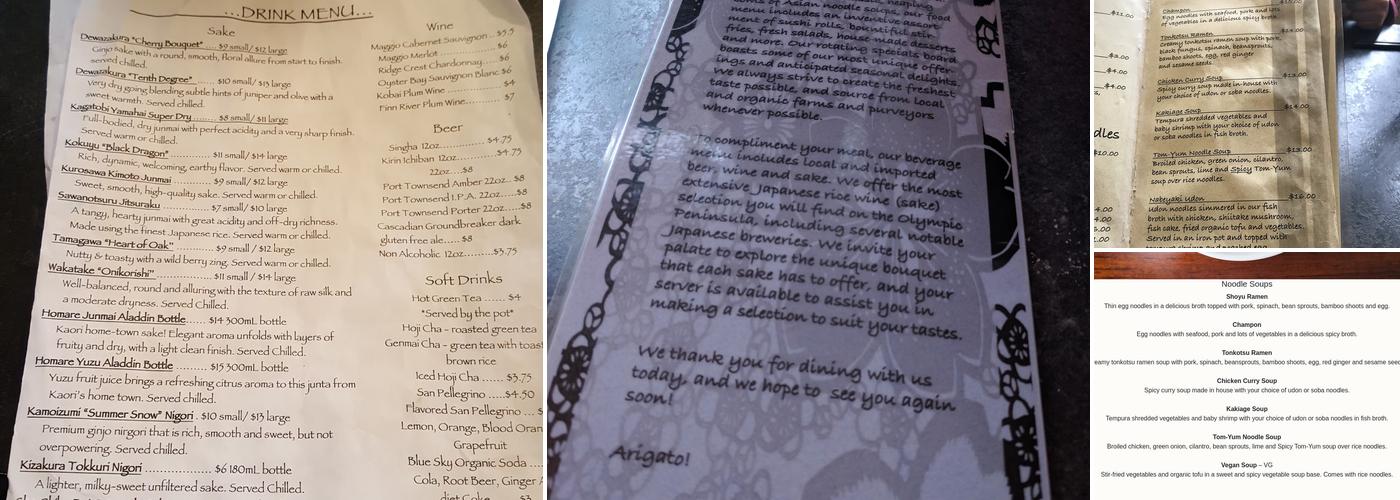 ...DRINK MENU...
Sake
Dewazakura "Cherry Bouquet" .... $9 small/ $12 large
Ginjo sake with a round, smooth, floral allure from start to finish.
served chilled.
Dewazakura "Tenth Degree" ...... $10 small/ $13 large
Very dry going blending subtle hints of juniper and olive with a
sweet warmth. Served chilled.
Kagatobi Yamahai Super Dry ...... $8 small/ $11 large
Full-bodied, dry junmai with perfect acidity and a very sharp finish.
Served warm or chilled.
Kokuyu "Black Dragon" .............. $11 small/ $14 large
Rich, dynamic, welcoming, earthy flavor. Served warm or chilled.
Kurosawa Kimoto Junmai ........... $9 small/ $12 large
Sweet, smooth, high-quality sake. Served warm or chilled.
Sawanotsuru Jitsuraku ............. $7 small/ $10 large
A tangy, hearty junmai with great acidity and off-dry richness.
Made using the finest Japanese rice. Served warm or chilled.
Tamagawa "Heart of Oak" ............ $9 small / $12 large
Nutty & toasty with a wild berry zing. Served warm or chilled.
Wakatake "Onikorishi" ............... $11 small / $14 large
Well-balanced, round and alluring with the texture of raw silk and
a moderate dryness. Served Chilled.
Homare Junmai Aladdin Bottle...... $14 300mL bottle
Kaori home-town sake! Elegant aroma unfolds with layers of
fruity and dry, with a light clean finish. Served Chilled.
Homare Yuzu Aladdin Bottle ........ $15 300mL bottle
Yuzu fruit juice brings a refreshing citrus aroma to this junta from
Kaori's home town. Served chilled.
Kamoizumi "Summer Snow" Nigori . $10 small/ $13 large
Premium ginjo nirgori that is rich, smooth and sweet, but not
overpowering. Served chilled.
Kizakura Tokkuri Nigori ................. $6 180mL bottle
A lighter, milky-sweet unfiltered sake. Served Chilled.
Wine
Maggio Cabernet Sauvignon ... $5.5
Maggio Merlot ............ $6
Ridge Crest Chardonnay..... $6
Oyster Bay Sauvignon Blanc $6
Kobai Plum Wine ............ $4
Finn River Plum Wine......... $7
Beer
Singha 12oz............ $4.75
Kirin Ichiban 12oz........$4.75
22oz....$8
Port Townsend Amber 22oz...$8
Port Townsend I.P.A. 22oz....$8
Port Townsend Porter 22oz.......$8
Cascadian Groundbreaker dark
gluten free ale.....$8
Non Alcoholic 12oz.........$3.75
Soft Drinks
Hot Green Tea ...... $4
*Served by the pot*
Hoji Cha - roasted green tea
Genmai Cha - green tea with toast
brown rice
Iced Hoji Cha ...... $3.75
San Pellegrino .....$4.50
Flavored San Pellegrino ... $
Lemon, Orange, Blood Oran
Grapefruit
Blue Sky Organic Soda ....
Cola, Root Beer, Ginger A
diet Coke ...... $3
of Asian noodle soups, our food
menu includes an inventive assort-
ment of sushi rolls, bountiful stir-
fries, fresh salads, house-made desserts
and more. Our rotating specials board
boasts some of our most unique offer-
ings and anticipated seasonal delights
We always strive to create the freshest
taste possible, and source from local
and organic farms and purveyors
whenever possible.
To compliment your meal, our beverage
menu includes local and imported
beer, wine and sake. We offer the most
extensive Japanese rice wine (sake)
selection you will find on the Olympic
Peninsula, including several notable
Japanese breweries. We invite your
palate to explore the unique bouquet
that each sake has to offer, and your
server is available to assist you in
making a selection to suit your tastes.
We thank you for dining with us
today, and we hope to see you again
soon!
Arigato!
$11.00
$4.00
$4.00
dles
$10.00
4.00
3.00
2.00
Champon
Egg noodles with seafood, pork and lots
of vegetables in a delicious spicy broth
Tonkotsu Ramen
Creamy tonkotsu ramen soup with pork,
black fungus, spinach, beansprouts,
bamboo shoots, egg, red ginger
and sesame seeds.
Chicken Curry Soup $13.00
Spicy curry soup made in-house with
your choice of udon or soba noodles.
Kakiage Soup $14.00
Tempura shredded vegetables and
baby shrimp with your choice of udon
or soba noodles in fish broth.
Tom-Yum Noodle Soup $13.00
Broiled chicken, green onion, cilantro,
bean sprouts, lime and Spicy Tom-Yum
soup over rice noodles.
Nabeyaki Udon $16.00
Udon noodles simmered in our fish
broth with chicken, shiitake mushroom,
fish cake, fried organic tofu and vegetables.
Served in an iron pot and topped with
Noodle Soups
Shoyu Ramen
Thin egg noodles in a delicious broth topped with pork, spinach, bean sprouts, bamboo shoots and egg.
Champon
Egg noodles with seafood, pork and lots of vegetables in a delicious spicy broth.
Tonkotsu Ramen
eamy tonkotsu ramen soup with pork, spinach, beansprouts, bamboo shoots, egg, red ginger and sesame see
Chicken Curry Soup
Spicy curry soup made in house with your choice of udon or soba noodles.
Kakiage Soup
Tempura shredded vegetables and baby shrimp with your choice of udon or soba noodles in fish broth.
Tom-Yum Noodle Soup
Broiled chicken, green onion, cilantro, bean sprouts, lime and Spicy Tom-Yum soup over rice noodles.
Vegan Soup – VG
Stir-fried vegetables and organic tofu in a sweet and spicy vegetable soup base. Comes with rice noodles.